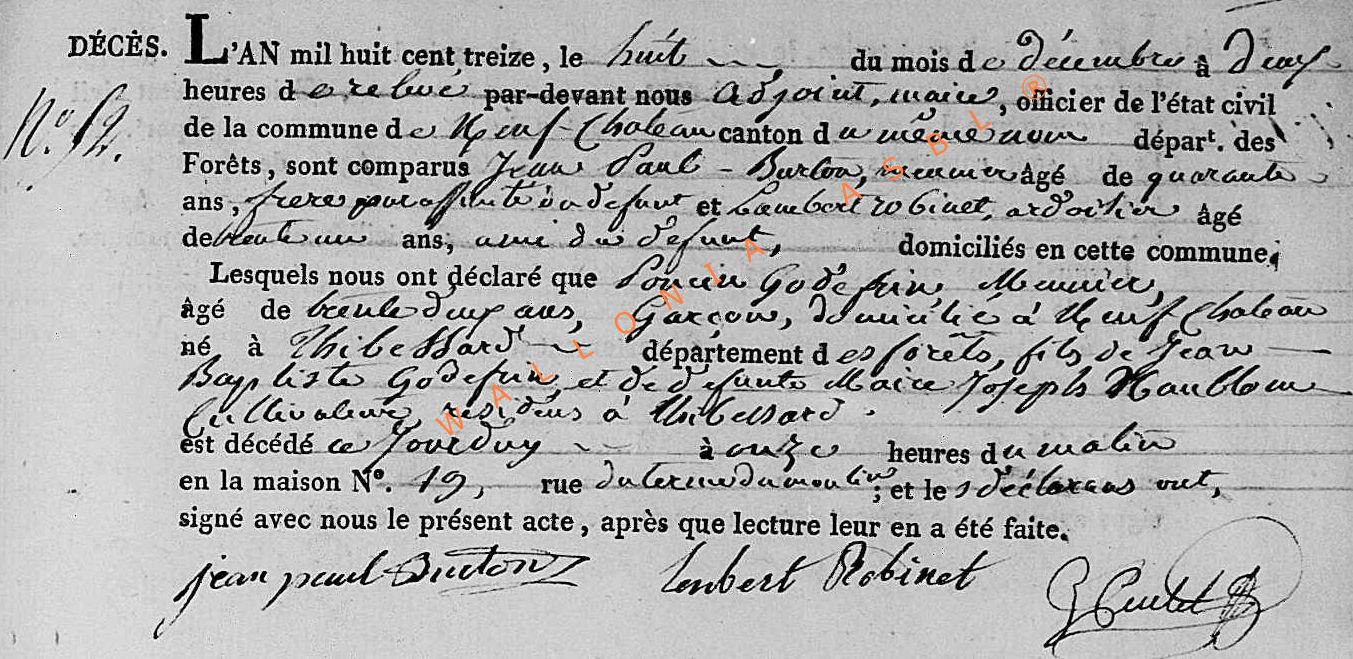 DÉCÈS. L'AN mil huit cent treize, le huit du mois de décembre à deux
N.º 52.
heures de relevé par-devant nous adjoint, maire, officier de l'état civil
de la commune de Neuf-Chateau canton du même nom départ. des
Forêts, sont comparus Jean Paul - Burton, meunier âgé de quarante
ans, frere par affinité du defunt et Lambert robinet, ardoisier âgé
de trente un ans, ami du defunt, domiciliés en cette commune,
Lesquels nous ont déclaré que Poncin Godefrin, Meunier,
âgé de trente deux ans, Garçon, domicilié à Neuf Chateau
né à Thibessard département des forêts, fils de Jean
Baptiste Godefrin et de defunte Marie Joseph
Cultivateurs residens à Thibessard.
est décédé ce Jourduy à onze heures du matin
en la maison Nº. 19, rue du moulin; et les déclarans ont,
signé avec nous le présent acte, après que lecture leur en a été faite.
jean paul Burton Lenbert Robinet
WALLONIA ASBL ®